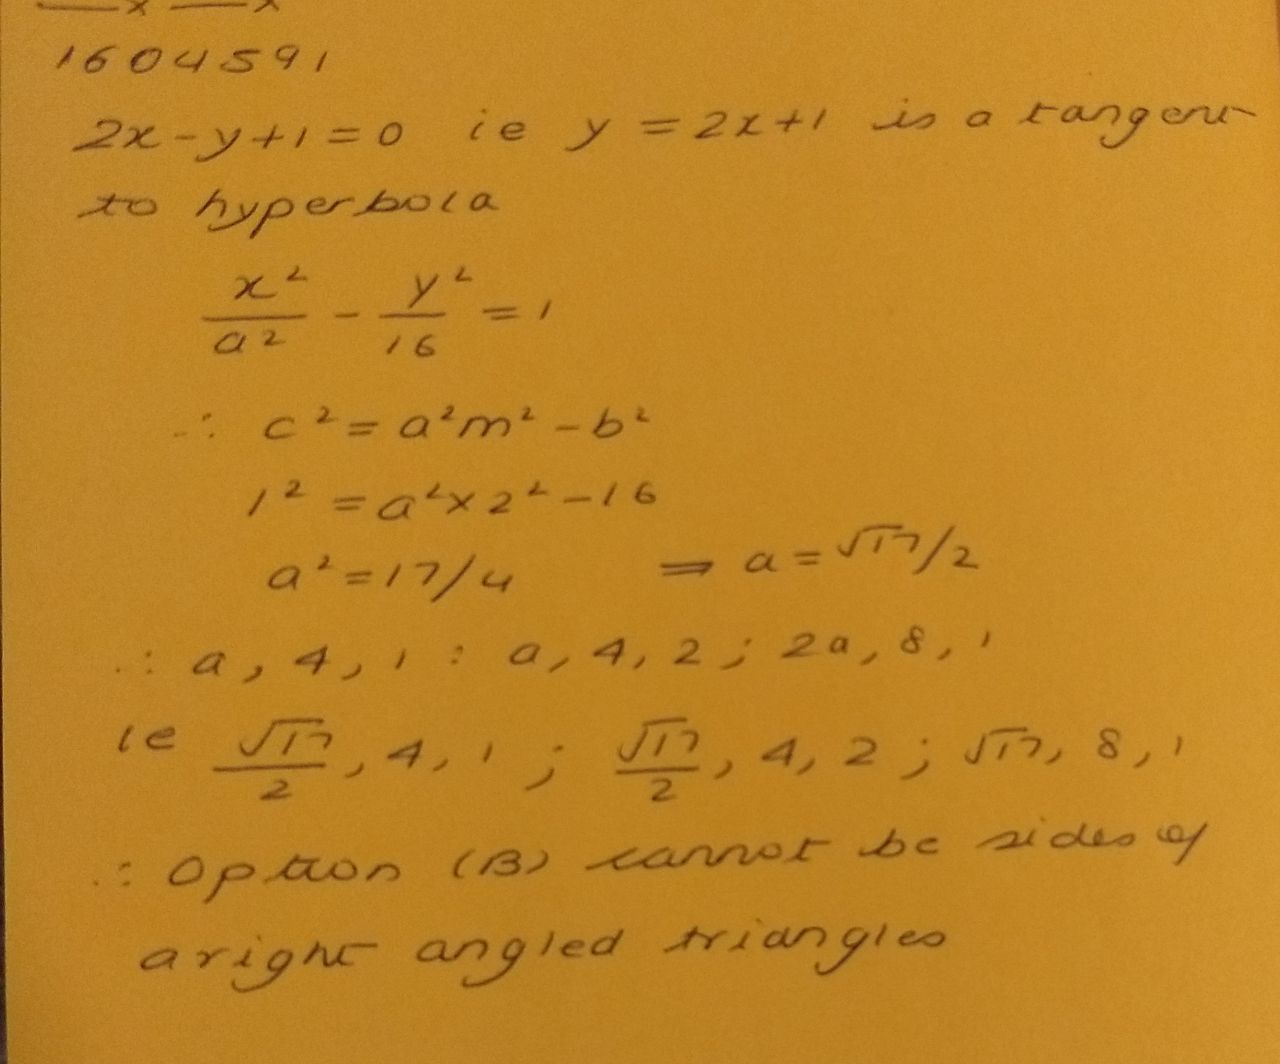 1604591
2x-y+1=0 ie y=2x+1 is a tangent
to hyperbola
x²/a² - y²/16 = 1
∴ c²=a²m²-b²
1²=a²×2²-16
a²=17/4 ⇒ a=√17/2
∴ a, 4, 1 : a, 4, 2 ; 2a, 8, 1
ie √17/2, 4, 1 ; √17/2, 4, 2 ; √17, 8, 1
∴ Option (B) cannot be sides of
a right angled triangles